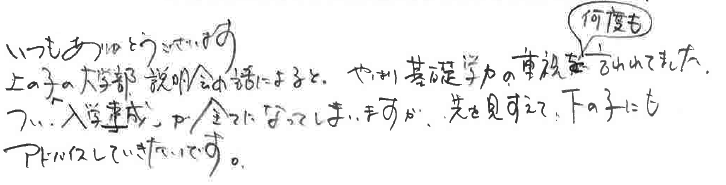 何度も
いつもありがとうございます
上の子の大学部説明会の話によると、やはり基礎学力の重視を言われてました。
つい「入学達成」が全てになってしまいますが、先を見すえて、下の子にも
アドバイスしていきたいです。